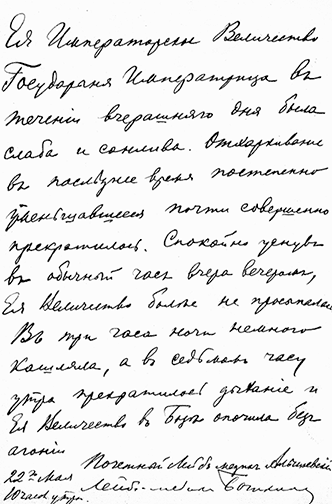 Ея Императорское Величество
Государыня Императрица въ
теченiи вчерашняго дня была
слаба и сонлива. Отхаркиванiе
въ последнее время постепенно
уменьшавшееся почти совершенно
прекратилось. Спокойно уснувъ
въ обычный часъ вчера вечеромъ,
Ея Величество более не просыпалась
Въ три часа ночи немного
кашляла, а въ седьмомъ часу
утра прекратилось дыханiе и
Ея Величество въ Бозе опочила безъ
агонiи
Почетный Лейбъ медикъ
22го Мая Лейбъ-медикъ
10 часовъ утра